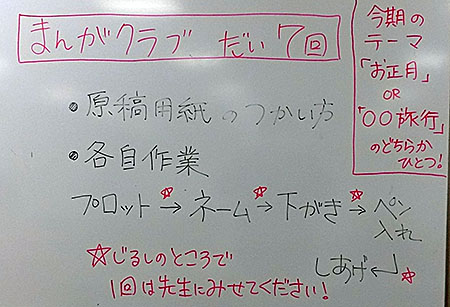 まんがクラブ だい7回
今期の
テーマ
「お正月」
OR
「〇〇旅行」
のどちらか
ひとつ!
・原稿用紙のつかい方
・各自作業
プロット→ネーム→下がき→ペン
入れ
しあげ↲
☆じるしのところで
1回は先生にみせてください!